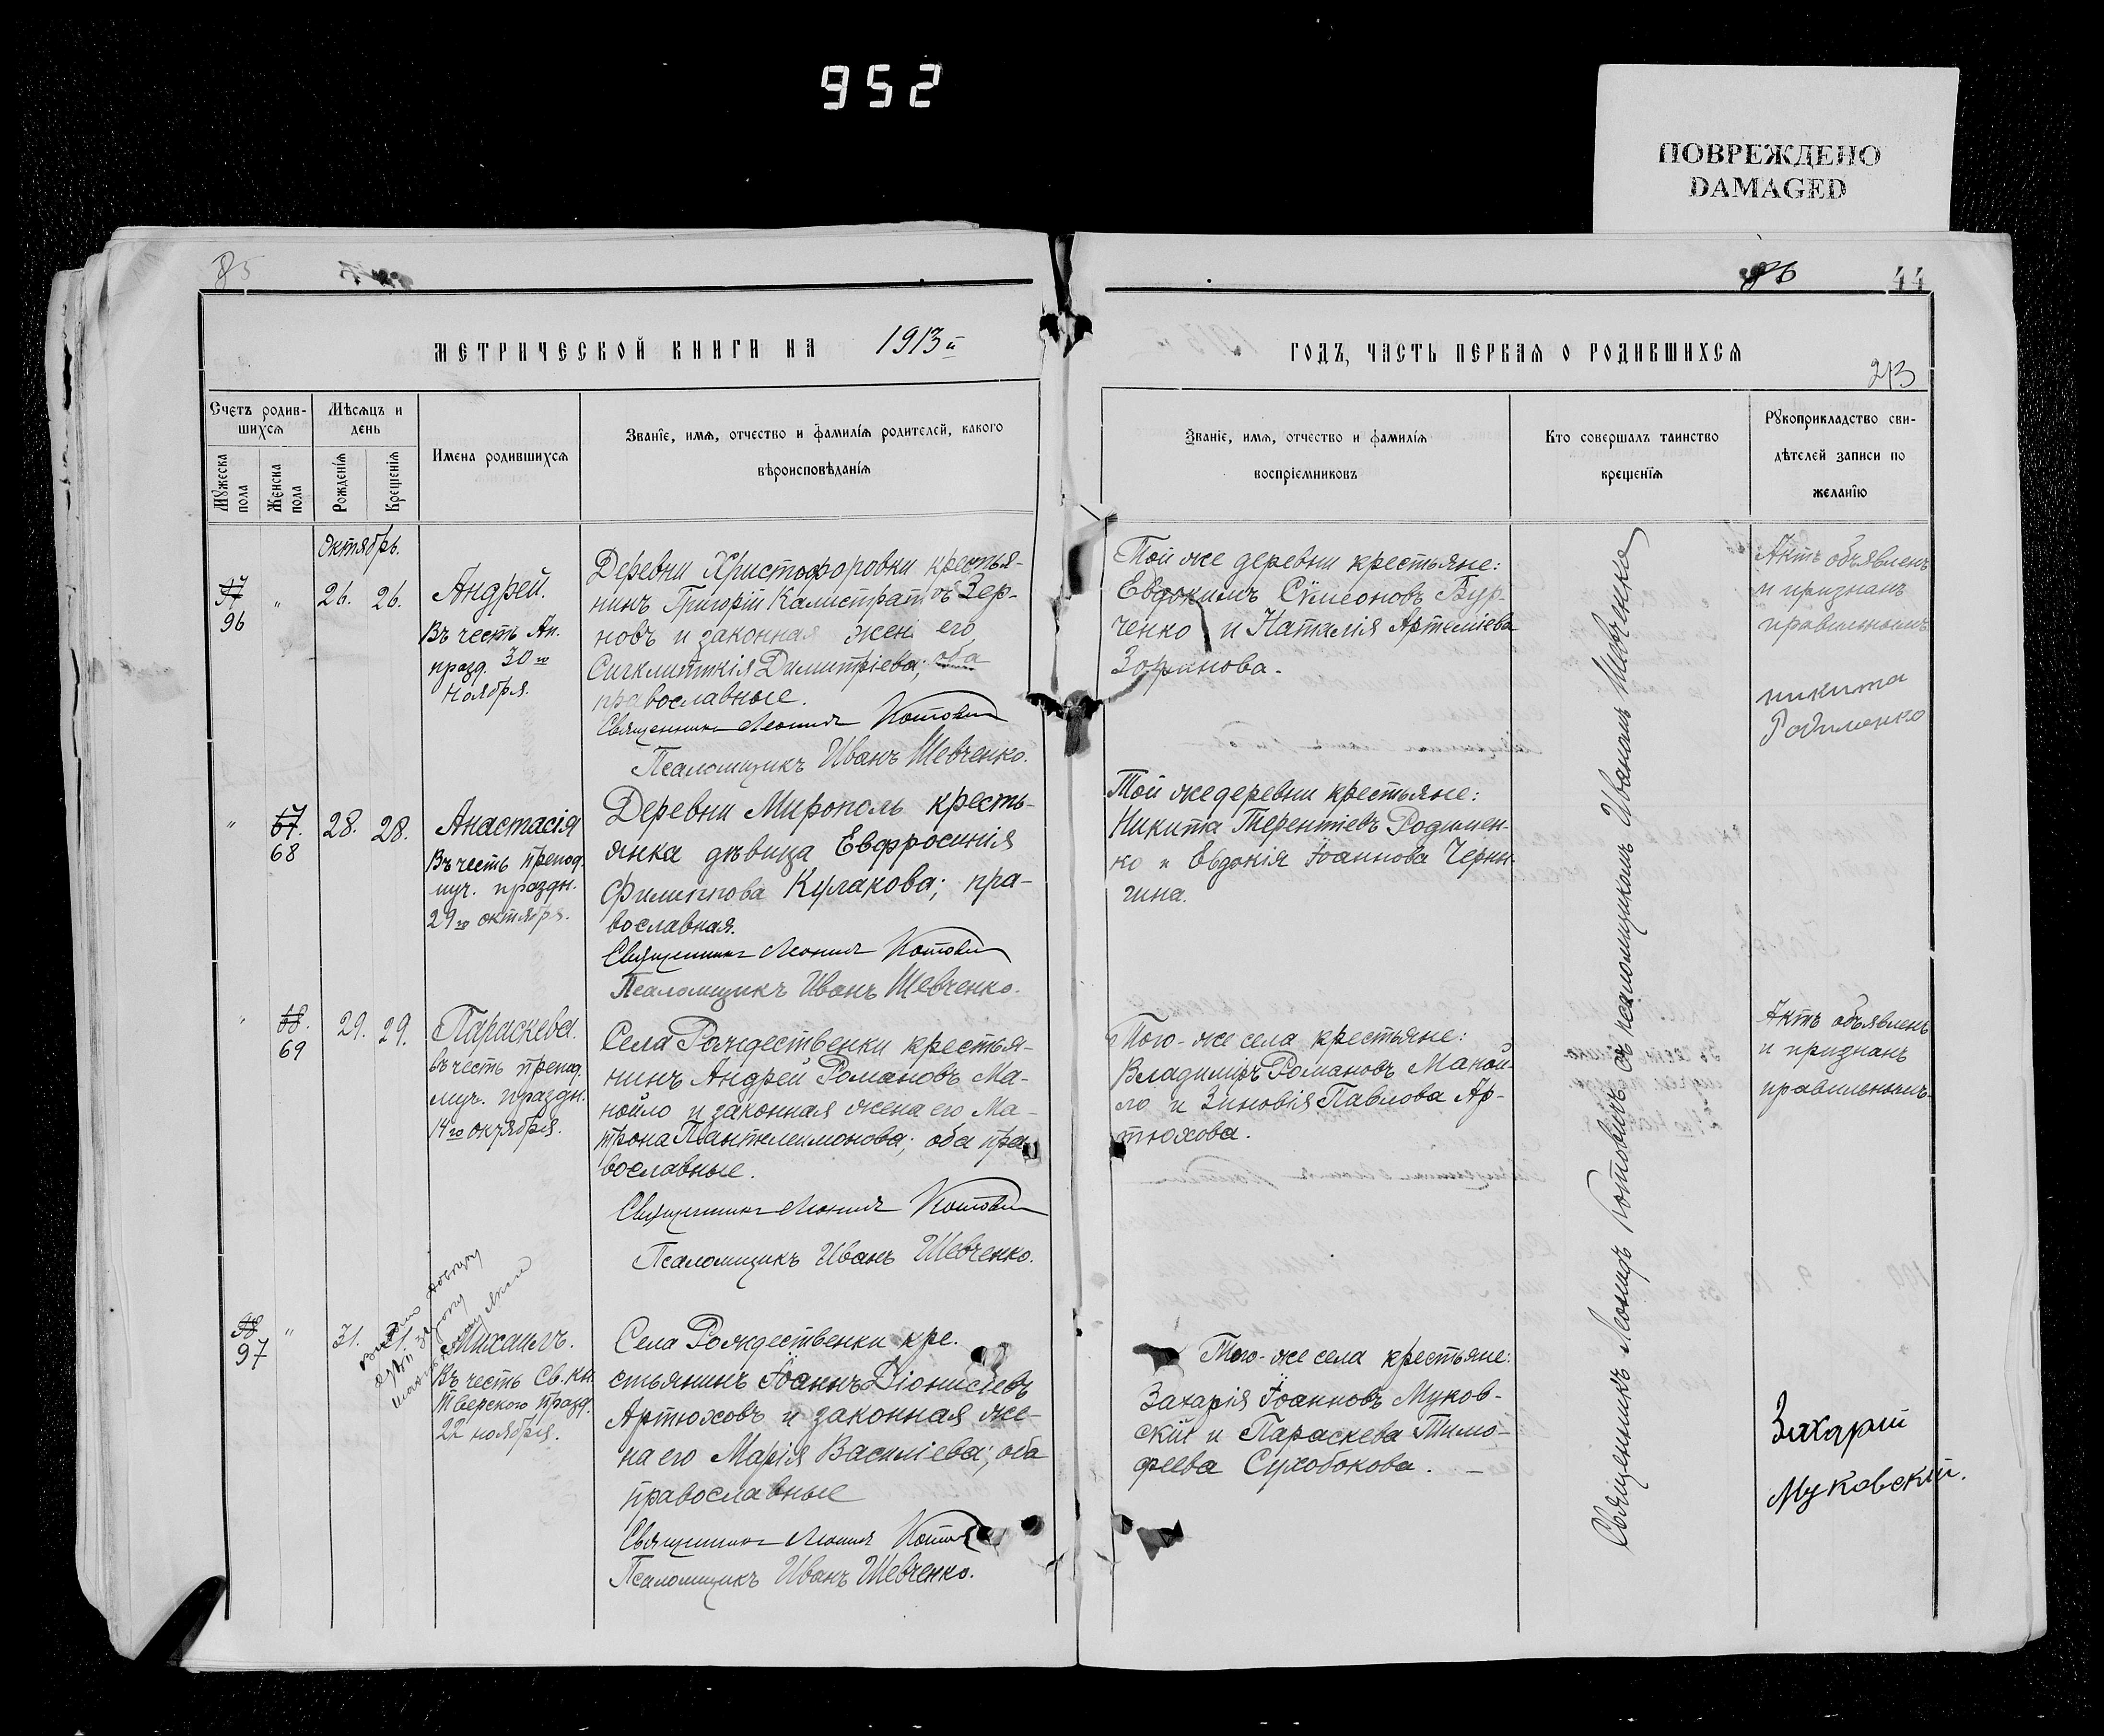 952
ПОВРЕЖДЕНО
DAMAGED
85
86
44
МЕТРИЧЕСКОЙ КНИГИ НА 1913й
ГОДЪ, ЧАСТЬ ПЕРВАЯ О РОДИВШИХСЯ
213
Счетъ родив-
шихся
Мужеска пола
Женска пола
Мѣсяцъ и
день
Рожденія
Крещенія
Имена родившихся
Званіе, имя, отчество и фамилія родителей, какого
вѣроисповѣданія
Званіе, имя, отчество и фамилія
воспріемниковъ
Кто совершалъ таинство
крещенія
Рукоприкладство сви-
дѣтелей записи по
желанію
Октябрь.
97
96
"
26.
26.
Андрей.
Въ честь Ап.
празд. 30го
Ноября.
Деревни Христофоровки крестья-
нинъ Григорій Калистратовъ Зер-
новъ и законная жена его
Сигклитикія Димитріева; оба
православные.
Священникъ Леонидъ Котович
Псаломщикъ Иванъ Шевченко.
Той же деревни крестьяне:
Евдокимъ Сѵмеоновъ Бур-
ченко и Наталія Артеміева
Зорянова.
Актъ объявленъ
и признанъ
правильнымъ
никита
Родименко
"
67.
68
28.
28.
Анастасія
Въ честь препод.
муч. праздн.
29го октября.
Деревни Мирополь кресть-
янка дѣвица Евфросинія
Филиппова Кулакова; пра-
вославная.
Священникъ Леонидъ Котович
Псаломщикъ Иванъ Шевченко.
Той же деревни крестьяне:
Никита Терентіевъ Родимен-
ко и Евдокія Іоаннова Черны-
гина.
"
68.
69
29.
29.
Параскева.
въ честь препод.
муч. праздн.
14го октября.
Села Рождественки крестья-
нинъ Андрей Романовъ Ма-
нойло и законная жена его Ма-
трона Пантелеимонова; оба пра-
вославные.
Священникъ Леонидъ Котович
Псаломщикъ Иванъ Шевченко.
Того-же села крестьяне:
Владиміръ Романовъ Маной-
ло и Зиновія Павлова Ар-
тюхова.
Актъ объявленъ
и признанъ
правильнымъ.
98
97
"
31.
31.
Михаилъ.
Въ честь Св. кн.
Тверского празд.
22 ноября.
Села Рождественки кре-
стьянинъ Іоаннъ Діонисіевъ
Артюховъ и законная же-
на его Марія Василіева; оба
православные
Священникъ Леонидъ
Псаломщикъ Иванъ Шевченко.
Того-же села крестьяне:
Захарія Іоанновъ Муков-
скій и Параскева Тимо-
феева Сухобокова.
Захарій
Муковскій.
Священникъ Леонидъ Котовичъ съ псаломщикомъ Иваномъ Шевченко